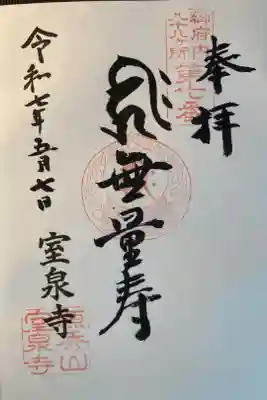 奉拝
御府内
八十八ヶ所
第七番
無量寿
室泉寺
令和七年五月七日
室泉寺